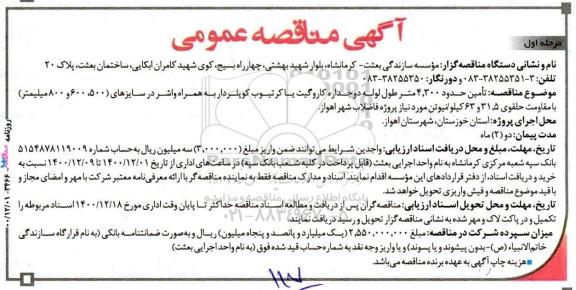 آگهی مناقصه عمومی
مرحله اول
نام و نشانی دستگاه مناقصه‌گزار: مؤسسه سازندگی بعثت- کرمانشاه، بلوار شهید بهشتی، چهارراه بسیج، کوی شهید کامران ابکایی، ساختمان بعثت، پلاک ۲۰
تلفن: ۳-۳۸۲۵۵۳۵۱-۰۸۳ و دورنگار: ۳۸۲۵۵۳۵۰-۰۸۳
موضوع مناقصه: تأمین حدود ۴,۳۰۰ متر طول لوله دوجداره کاروگیت یا کرتیوب کوپلردار به همراه واشر در سایزهای (۶۰۰,۵۰۰ و ۸۰۰ میلیمتر)
با مقاومت حلقوی ۳۱,۵ و ۶۳ کیلونیوتن مورد نیاز پروژه فاضلاب شهر اهواز.
محل اجرای پروژه: استان خوزستان، شهرستان اهواز.
مدت پیمان: دو (۲) ماه
تاریخ، مهلت، مبلغ و محل دریافت اسناد ارزیابی: واجدین شرایط می‌توانند ضمن واریز مبلغ (۳,۰۰۰,۰۰۰) سه میلیون ریال به حساب شماره ۵۱۵۴۸۷۸۱۱۹۰۰۹
بانک سپه شعبه مرکزی کرمانشاه به نام واحد اجرایی بعثت (قابل پرداخت در کلیه شعب بانک سپه) در ساعت‌های اداری از تاریخ ۱۴۰۰/۱۲/۰۱ تا ۱۴۰۰/۱۲/۰۹ نسبت به
خرید و دریافت اسناد، از دفتر قراردادهای این مؤسسه اقدام نمایند. اسناد و مدارک مناقصه فقط به نماینده مناقصه‌گر با ارائه معرفی‌نامه معتبر شرکت با مهر و امضای مجاز و
با قید موضوع مناقصه و فیش واریزی تحویل خواهد شد.
تاریخ، مهلت و محل تحویل اسناد ارزیابی: مناقصه‌گران پس از دریافت و مطالعه اسناد مناقصه حداکثر تا پایان وقت اداری مورخ ۱۴۰۰/۱۲/۱۸ اسناد مربوطه را
تکمیل و در پاکت لاک و مهر شده به نشانی مناقصه‌گزار تحویل و رسید دریافت نمایند.
میزان سپرده شرکت در مناقصه: مبلغ ۲,۵۵۰,۰۰۰,۰۰۰ (یک میلیارد و پانصد و پنجاه میلیون) ریال و به‌صورت ضمانتنامه بانکی (به نام قرارگاه سازندگی
خاتم‌الانبیاء (ص)-بدون پیشوند و یا پسوند) و یا واریز وجه نقد به شماره حساب قید شده فوق (به نام واحد اجرایی بعثت)
هزینه چاپ آگهی به عهده برنده مناقصه می‌باشد.